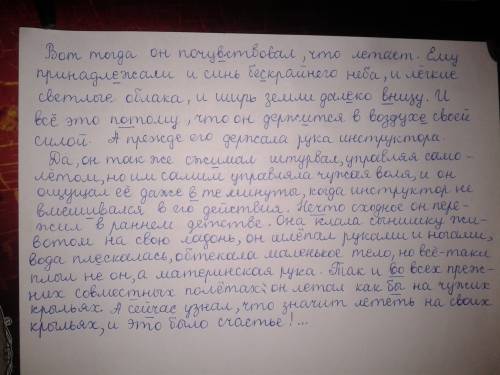 Вот тогда он почувствовал, что летает. Ему
принадлежали и синь бескрайнего неба, и лёгкие
светлые облака, и ширь земли далёко внизу. И
всё это потому, что он держится в воздухе своей
силой. А прежде его держала рука инструктора.
Да, он так же сжимал штурвал, управляя само-
лётом, но им самим управляла чужая воля, и он
ощущал её даже в те минуты, когда инструктор не
вмешивался в его действия. Нечто сходное он пере-
жил в раннем детстве. Она клала сынишку жи-
вотом на свою ладонь, он шлёпал руками и ногами,
вода плескалась, обтекала маленькое тело, но всё-таки
плыл не он, а материнская рука. Так и во всех преж-
них совместных полётах: он летал как бы на чужих
крыльях. А сейчас узнал, что значит лететь на своих
крыльях, и это было счастье!...